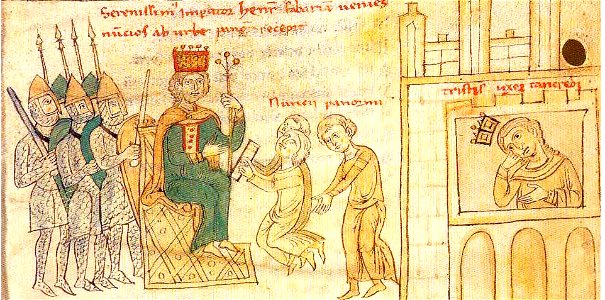 Serenissim' Imperator Henr' fabariā veniēs
nūcios ab urbe pang recepit
Nūcii panormi
tristis uxor tancredi